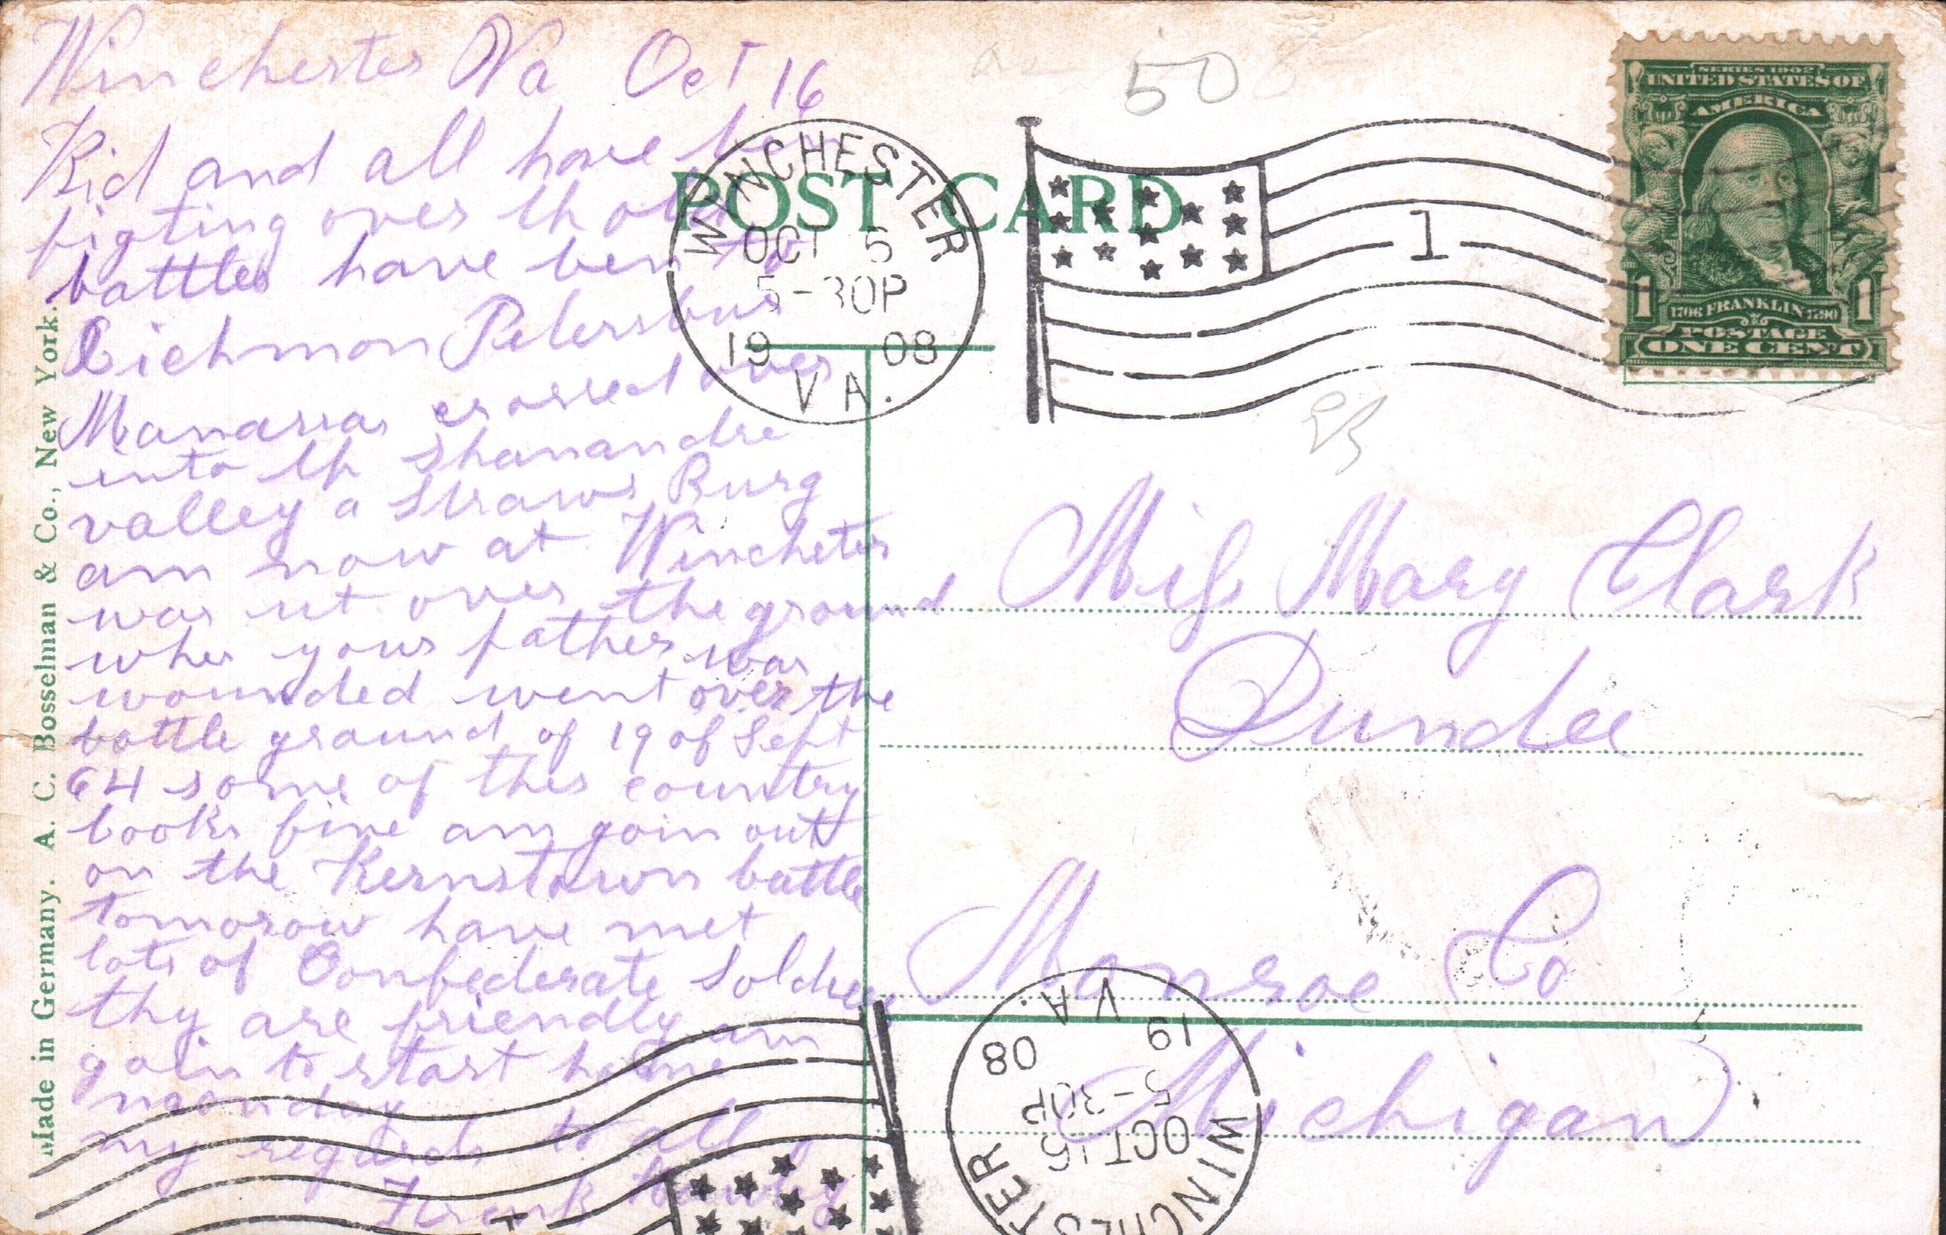 Winchester Va Oct 16
Kid and all have ben
figting over th old
battles have ben to
Richmon Petersbur
Manassa crossed over
into th Shanandre
valley a Straws Burg
am now at Winchetes
was ut over the ground
wher your father was
wounded went over the
battle ground of 19 of Sept
64 some of this country
looks fine am goin out
on the Kernstown battle
tomorow have met
lots of Confederate Soldiers
thy are friendly am
goin to start home
monday
my regards to all
Frank
Made in Germany. A. C. Bosselman & Co., New York.
508
POST CARD
WINCHESTER
OCT 5
5-30P
19 08
VA.
1
SERIES 1902
UNITED STATES OF
AMERICA
1 1
1706 FRANKLIN 1790
POSTAGE
ONE CENT
Miss Mary Clark
Dundee
Monroe Co
Michigan
WINCHESTER
OCT 16
5-30P
19 08
VA.